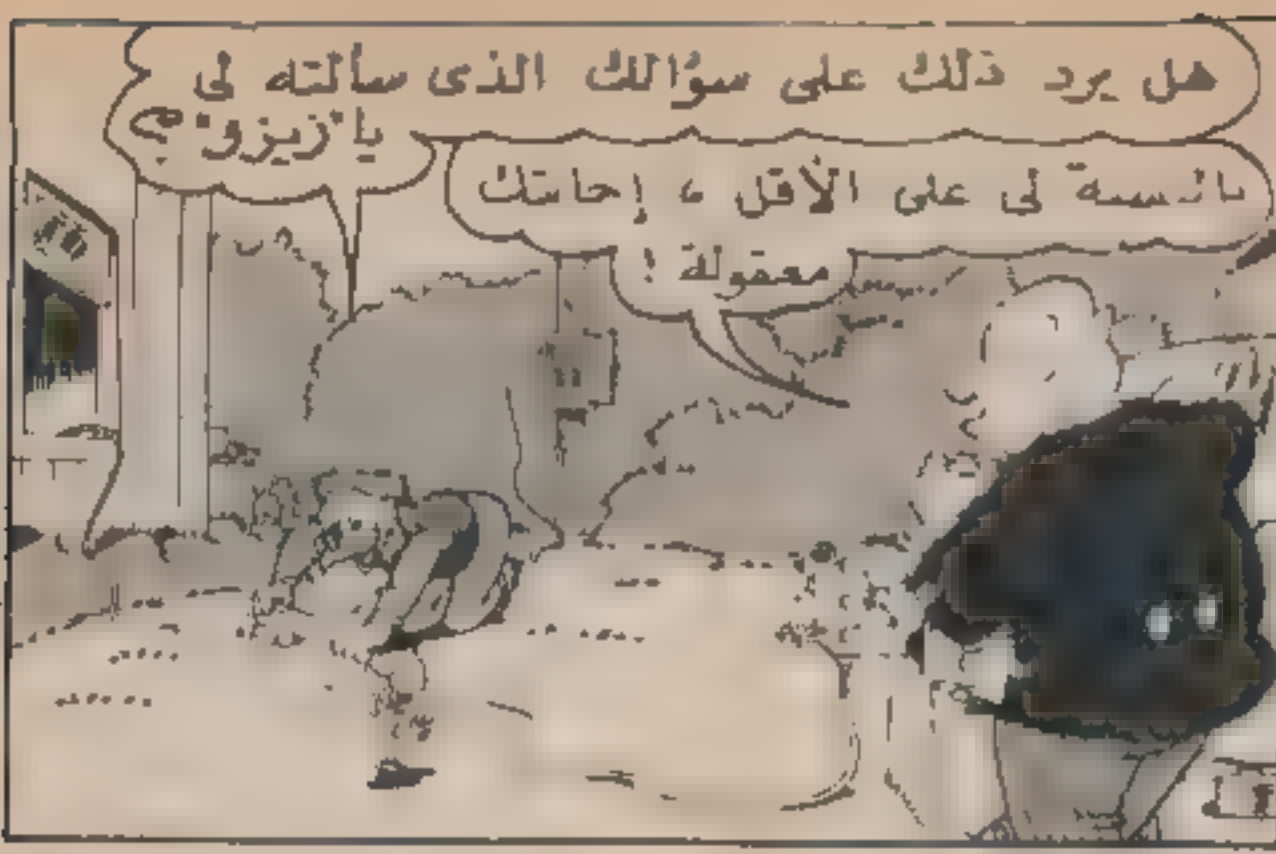 هل يرد ذلك على سؤالك الذى سألته لى
يا "زيزو" ؟
بالنسبة لى على الأقل ، إجابتك
معقولة !